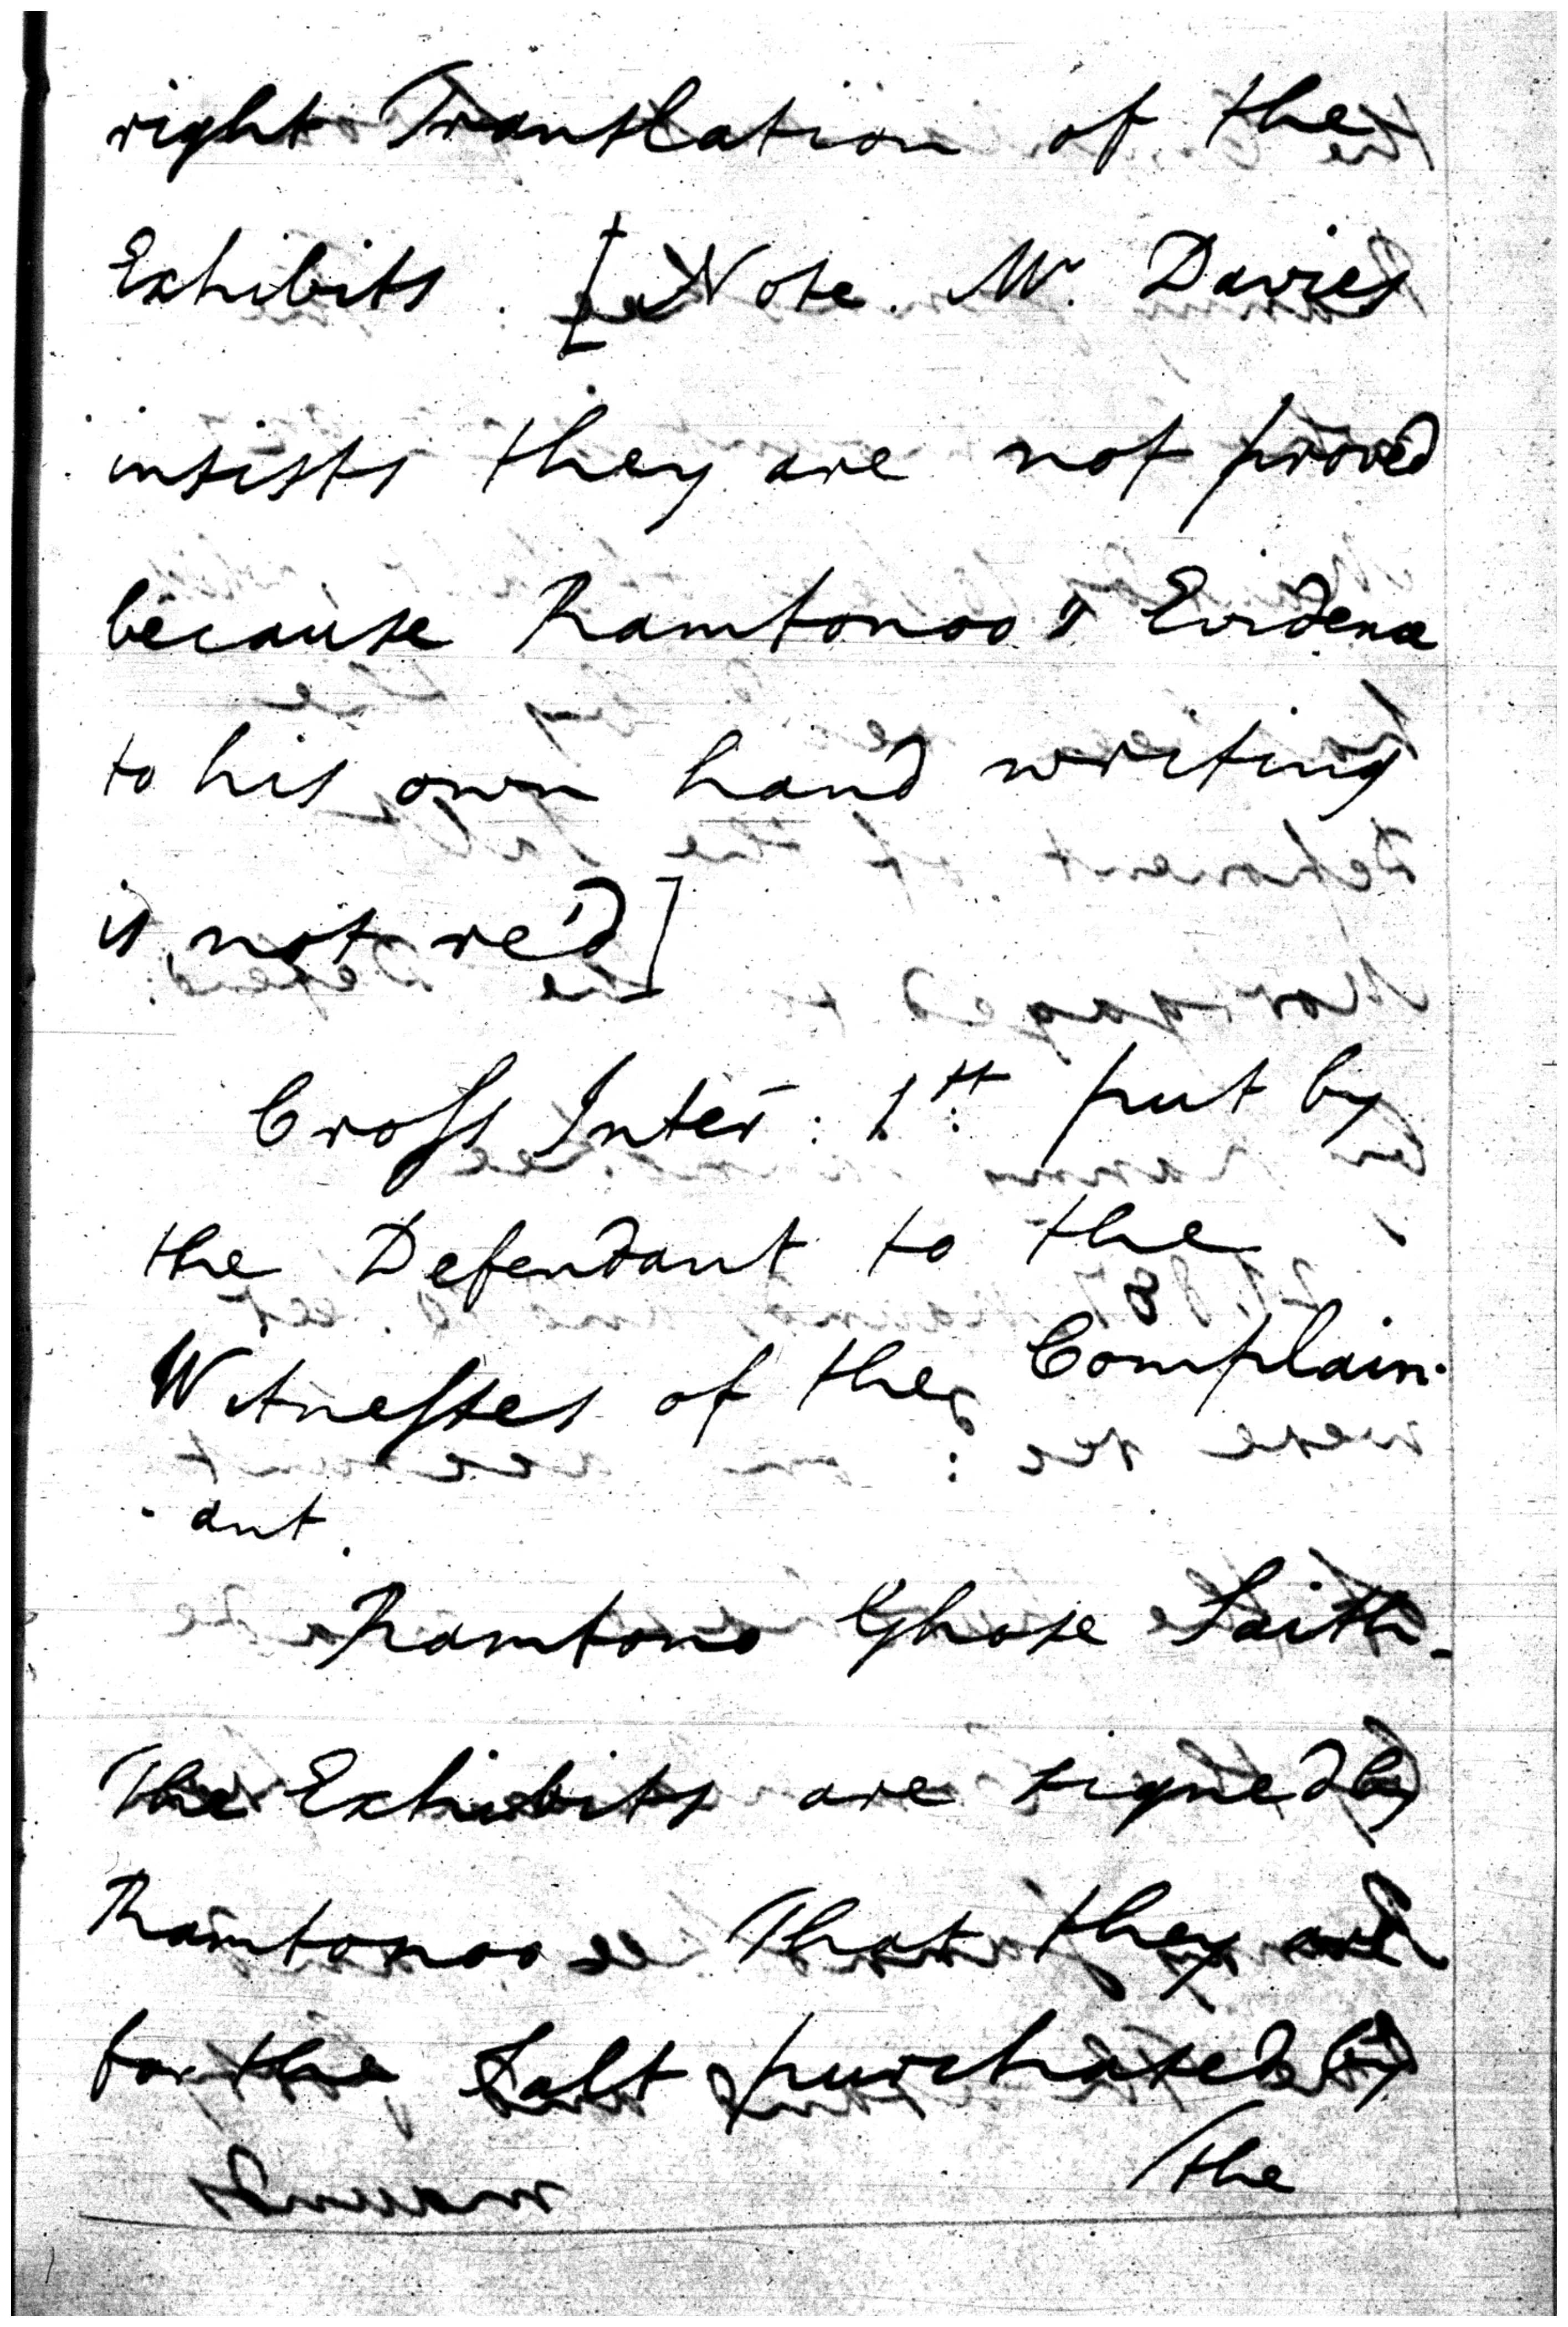 right Translation of the
Exhibits. [Note. Mr. Davies
insists they are not proved
because Ramtonoo's Evidence
to his own hand writing
is not re'd]
Cross Inter: 1st put by
the Defendant to the
Witnesses of the Complain-
-ant.
Ramtono Ghose Saith.
The Exhibits are signed by
Ramtonoo That they are
for the Salt purchased by
The